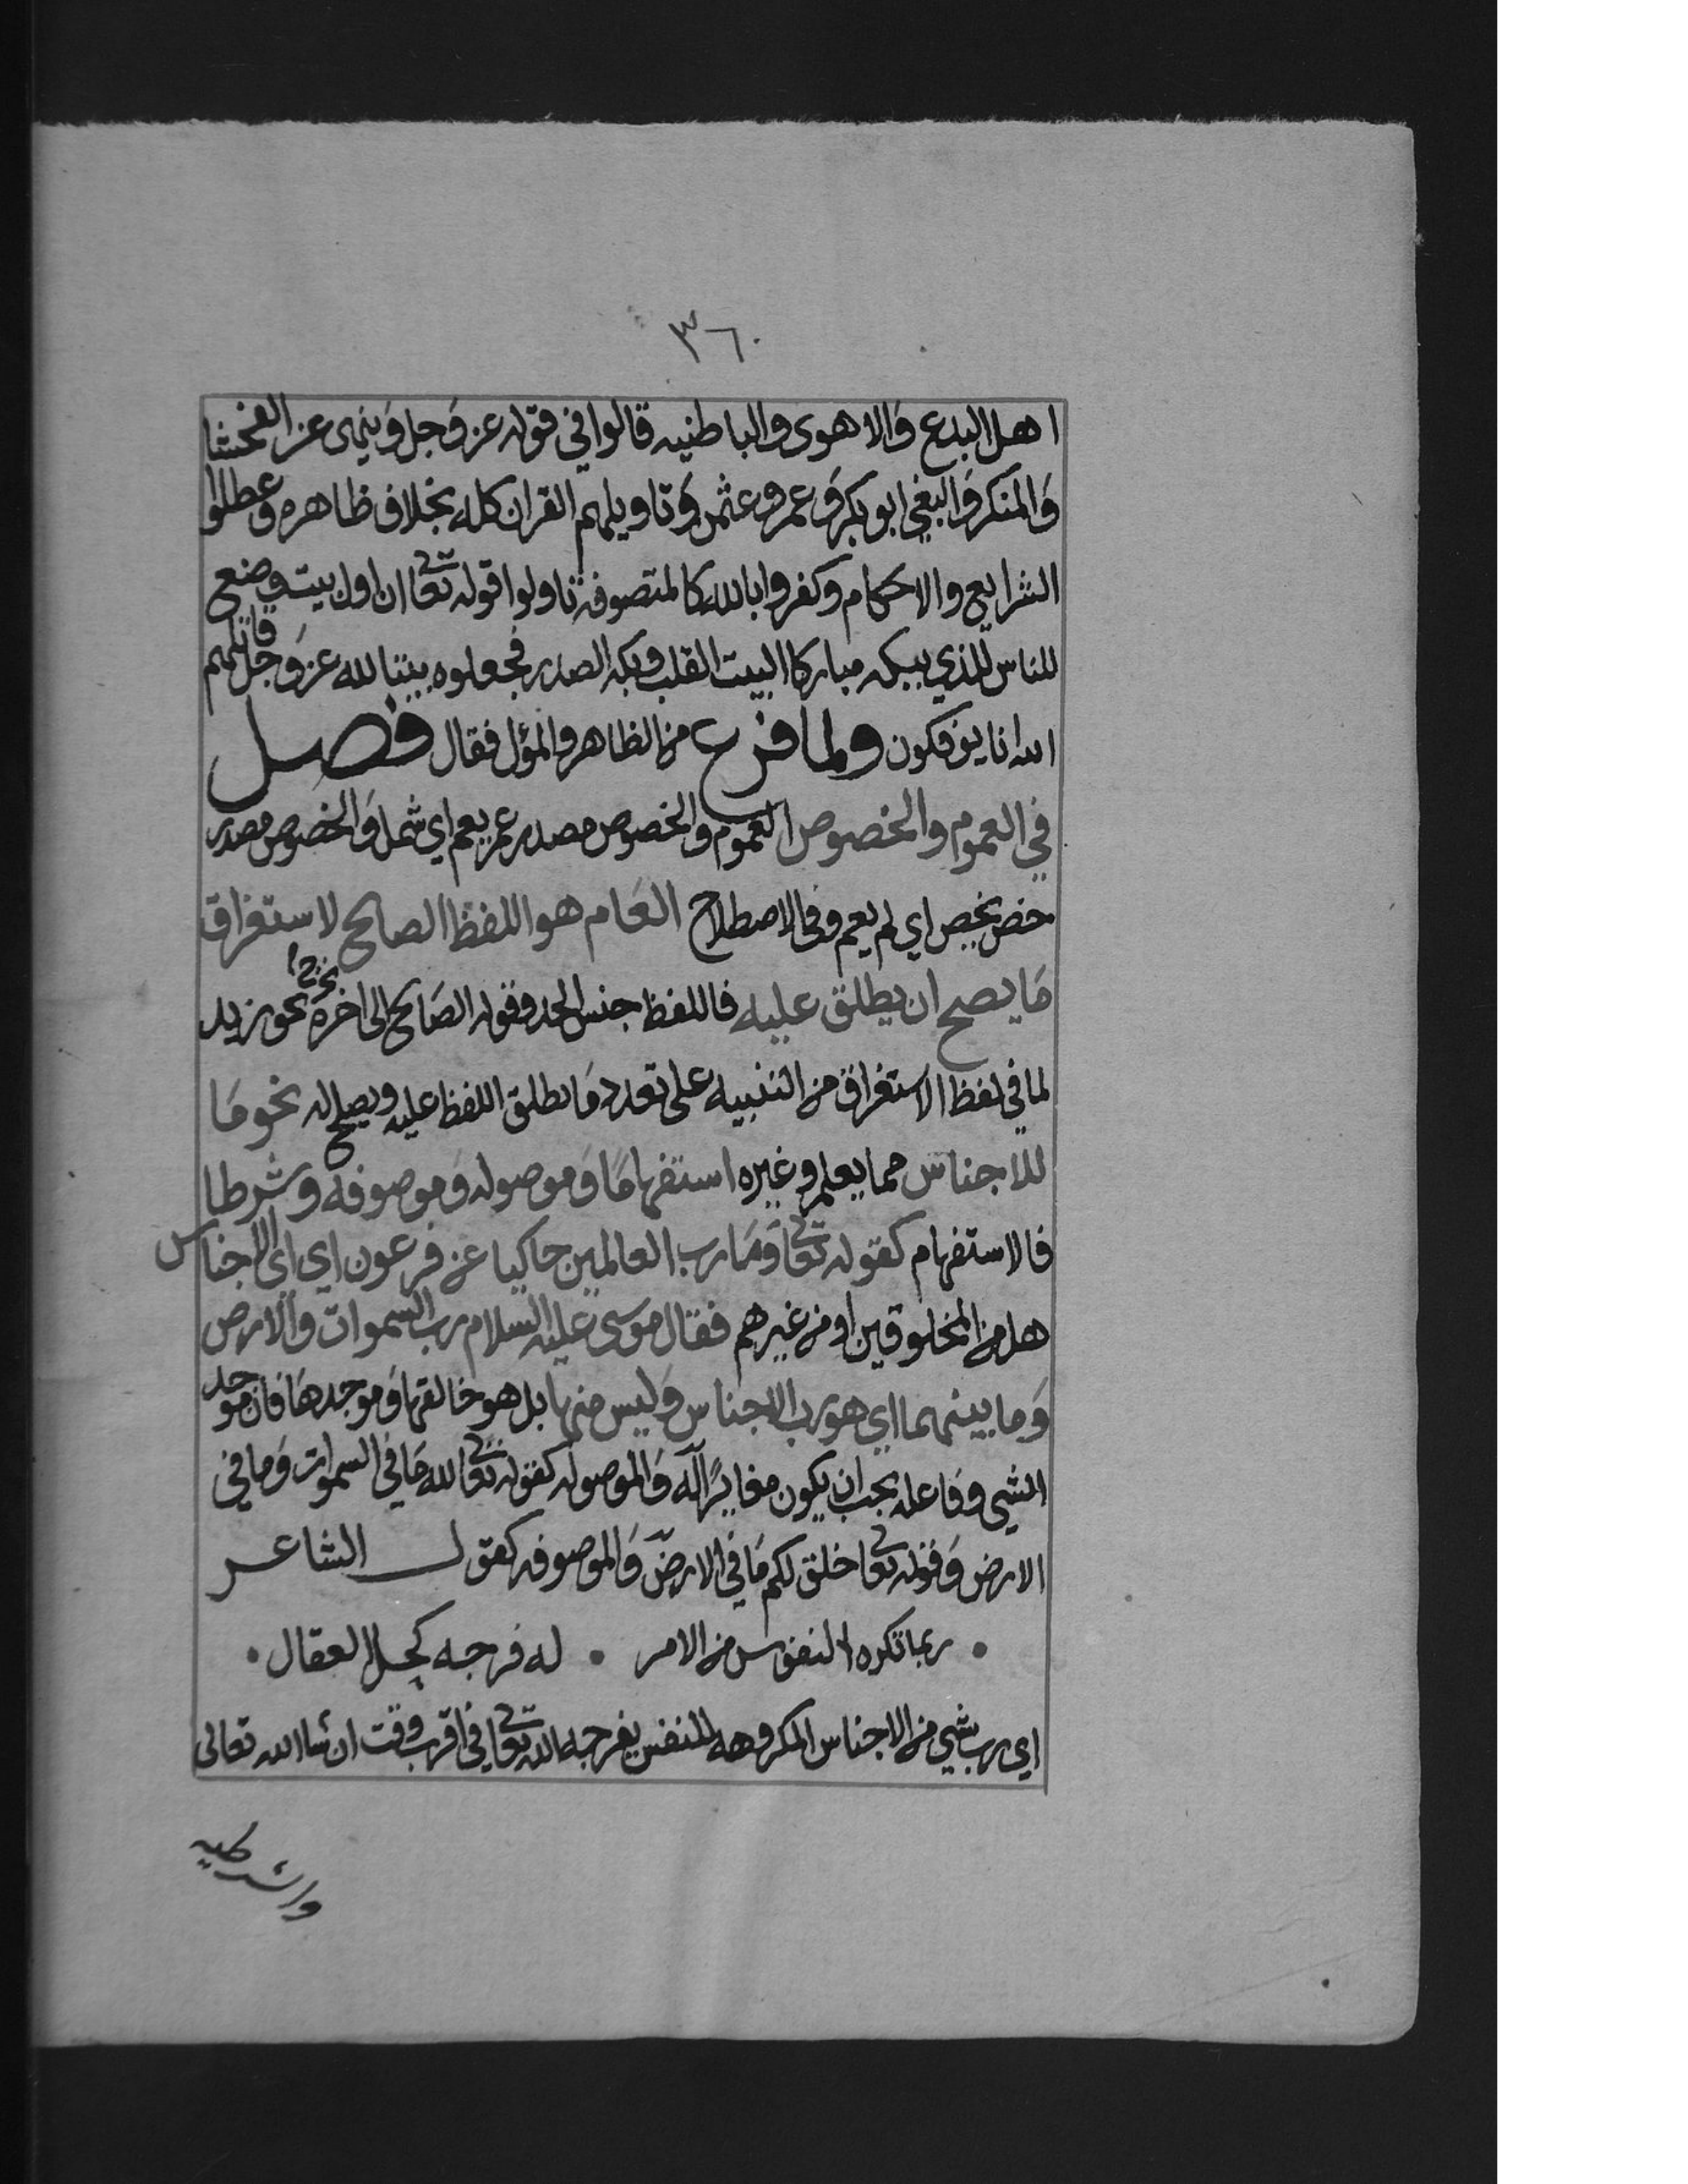 ٣٦٠
اهل البدع والاهوى والباطنيه قالوا في قوله عز وجل وينهى عن الفحشا
والمنكر والبغي ابو بكر وعمر وعثمن وتاويلهم القران كله بخلاف ظاهره وعطلوا
الشرايع والاحكام وكفروا بالله كالمتصوفه تاولوا قوله تعا ان اول بيت وضع
للناس للذي ببكه مباركا البيت القلب وبكه الصدر فجعلوه بيتا لله عز وجل قاتلهم
الله انا يوفكون ولما فرغ من الظاهر والمؤل فقال فصل
في العموم والخصوص العموم والخصوص مصدر عم يعم اي شمل والخصوص مصدر
خص يخص اي لم يعم وفي الاصطلاح العام هو اللفظ الصالح لاستغراق
ما يصح ان يطلق عليه فاللفظ جنس الحد وقوله الصالح الى اخره نحو زيد
لما في لفظ الاستغراق من التنبيه على تعدد ما يطلق اللفظ عليه ويصح له نحو ما
للاجناس مما يعلم وغيره استفهاما وموصوله وموصوفه وشرطا
فالاستفهام كقوله تعا وما رب العالمين حاكيا عن فرعون اي اي الاجناس
هل من المخلوقين او من غيرهم فقال موسى عليه السلام رب السموات والارض
وما بينهما اي هو رب الاجناس وليس منها بل هو خالقها وموجدها فان موجد
الشي وفاعله يجب ان يكون مغايرا له والموصوله كقوله تعا لله ما في السموات وما في
الارض وقوله تعا خلق لكم ما في الارض والموصوفه كقول الشاعر
ربما تكره النفوس من الامر • له فرجه كحل العقال •
اي رب شي من الاجناس المكروهه للنفس يفرجه الله تعا في اقرب وقت ان شا الله تعالى
والشرطيه